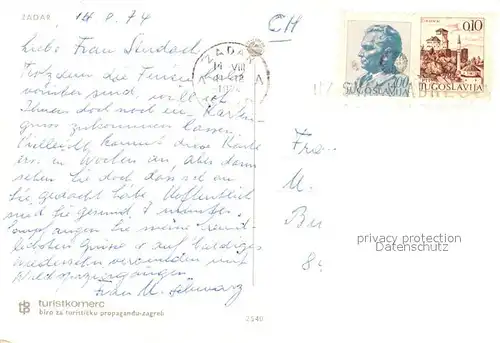 ZADAR
14 8. 74
CH
Liebe Frau
Trotzdem die Ferien
vorüber sind, will ich
Ihnen doch noch ein Karten-
gruss zukommen lassen.
Vielleicht kommt diese Karte
erst in Wochen an aber dann
sehen Sie doch dass ich an
Sie gedacht habe. Hoffentlich
sind Sie gesund, munter.
Empfangen Sie meine herz-
lichsten Grüsse & auf baldiges
Wiedersehen verbunden mit
Frau M. Schwarz
ZADAR
14 VIII
JUGOSLAVIJA
0,10
JUGOSLAVIJA
Fra
M.
Bu
8
privacy protection
Datenschutz
turistkomerc
biro za turističku propagandu-zagreb